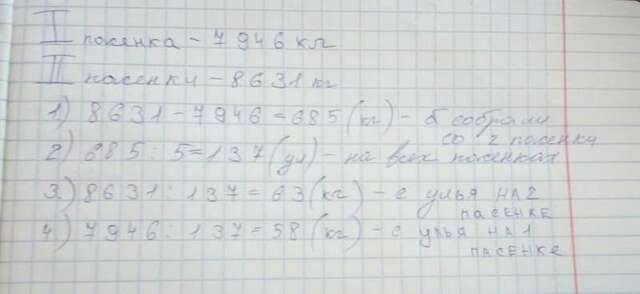 I посенка - 7946 кг
II насенки - 8631 кг
1) 8631 - 7946 = 685 (кг) - б собрали
со 2 посенки
2) 685 : 5 = 137 (ул) - на всех посенках
3) 8631 : 137 = 63 (кг) - с улья на 2
пасенке
4) 7946 : 137 = 58 (кг) - с улья на 1
пасенке